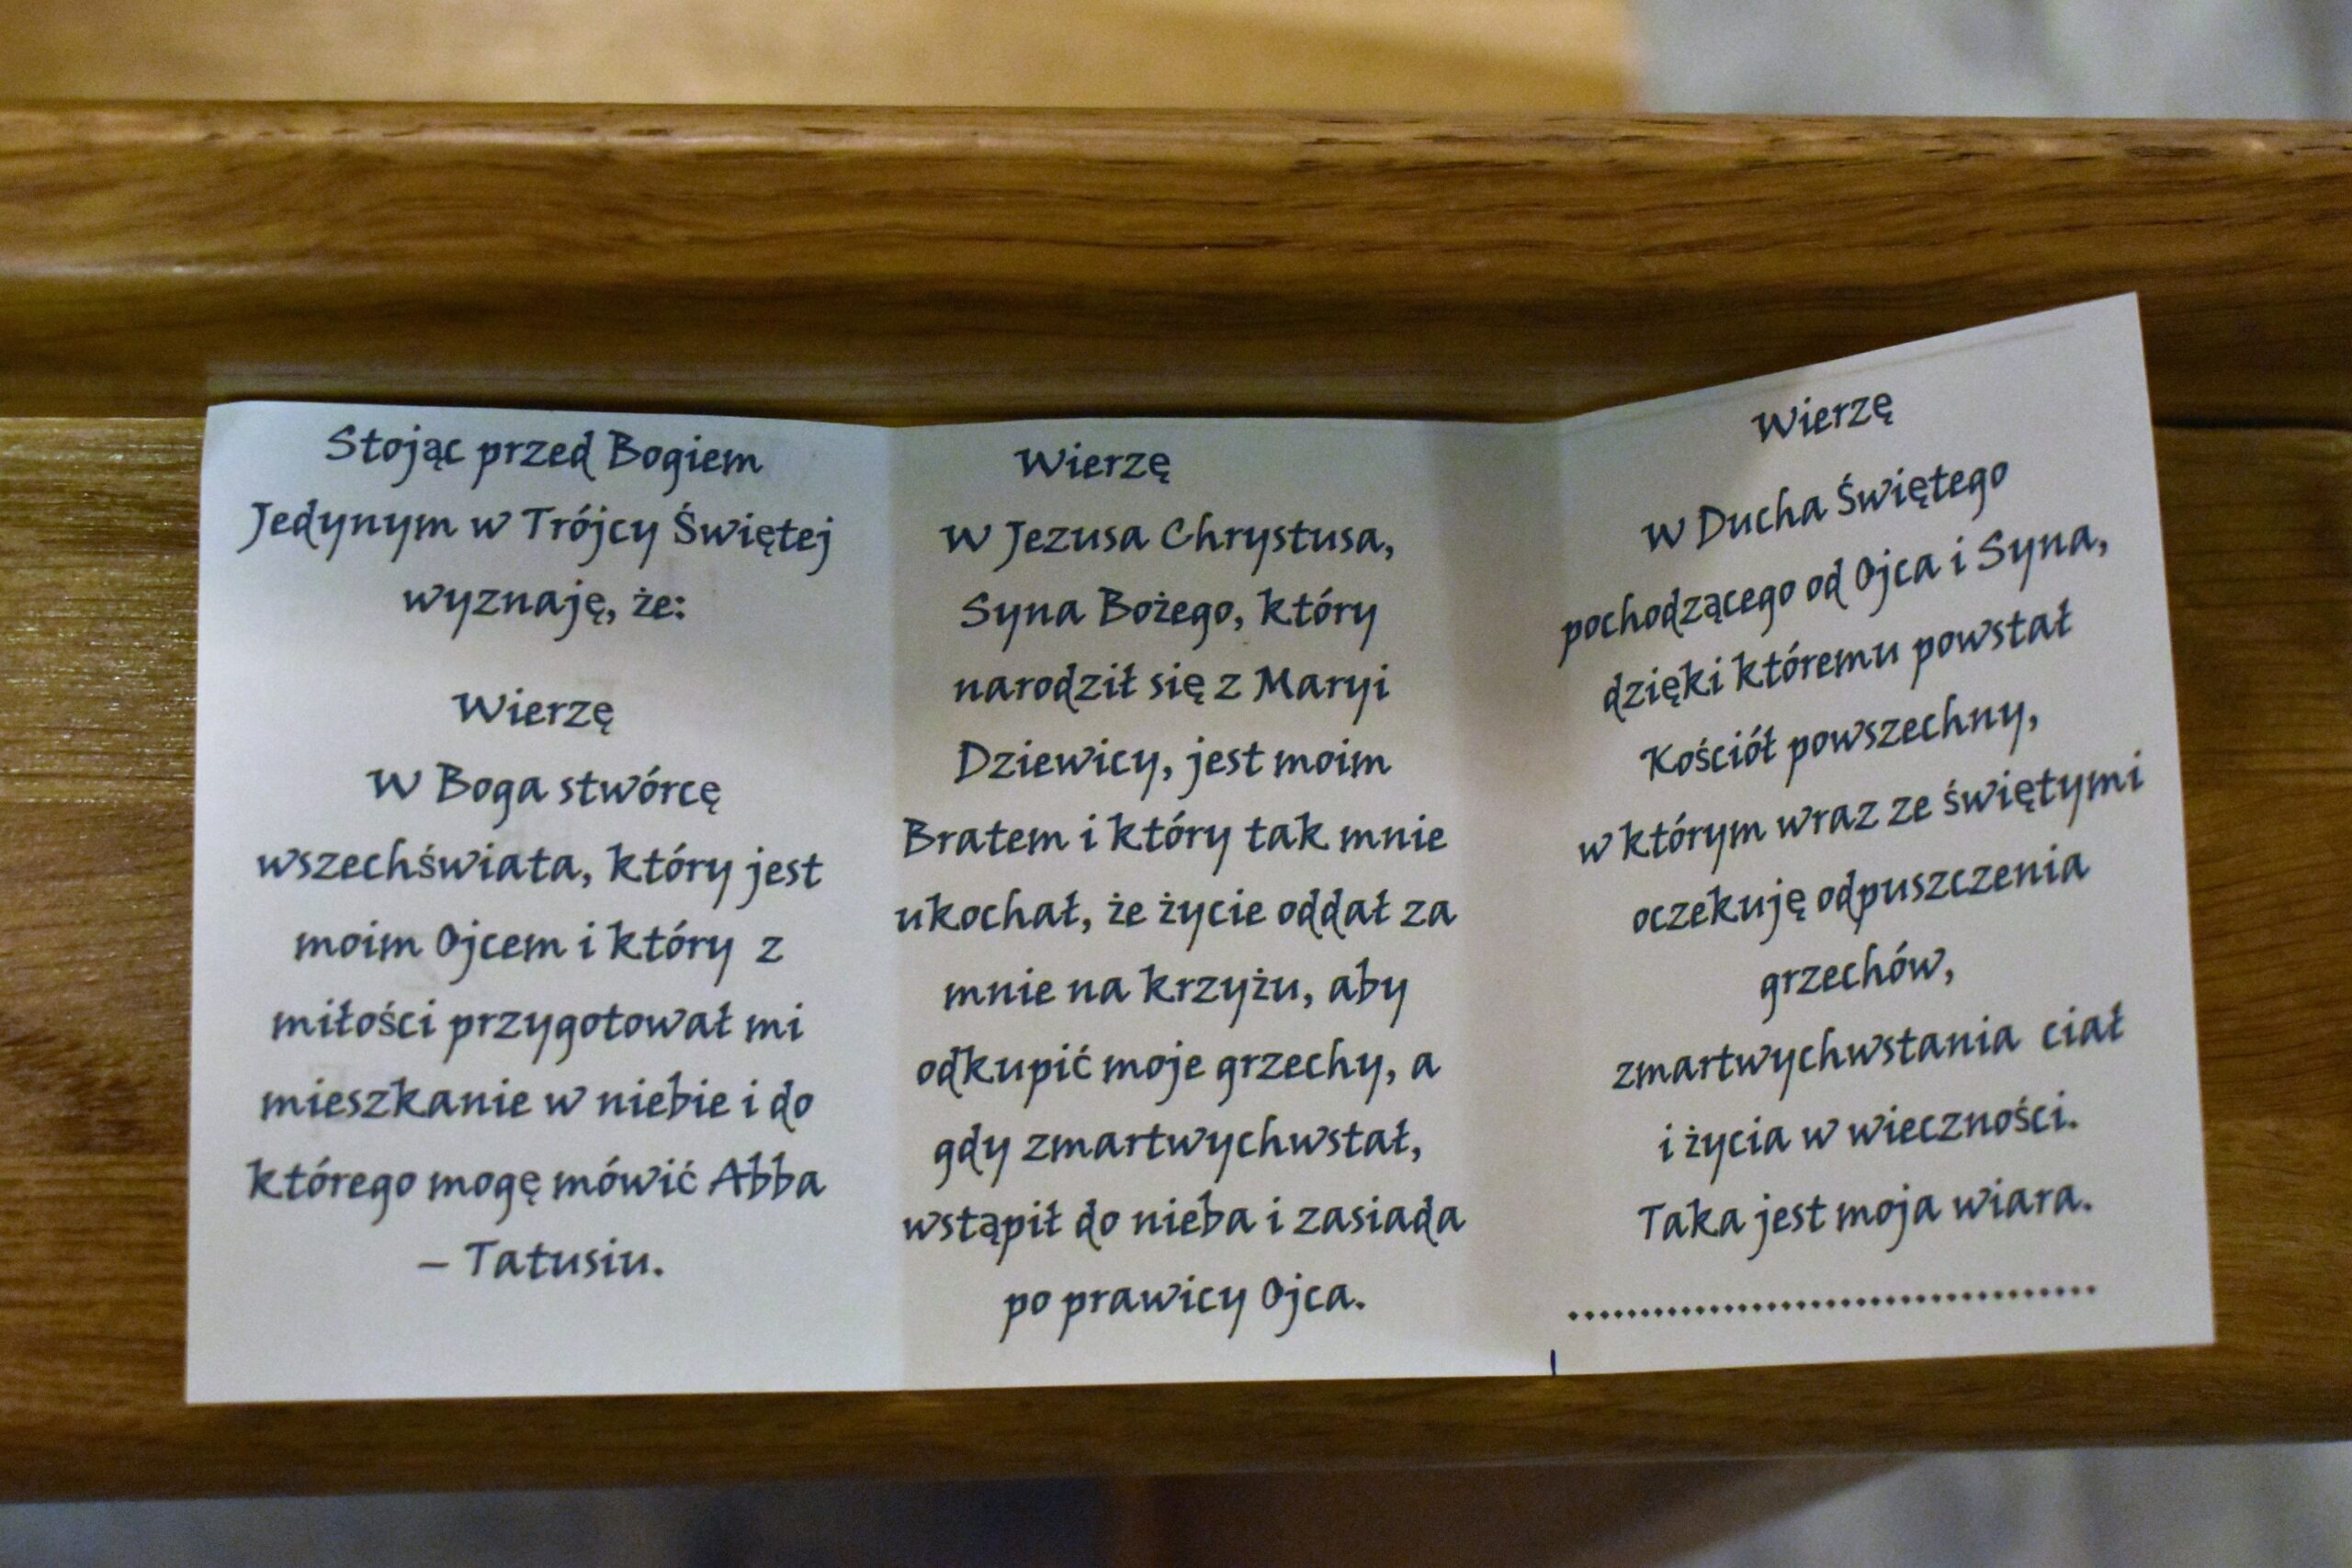 Stojąc przed Bogiem
Jedynym w Trójcy Świętej
wyznaję, że:
Wierzę
W Boga stwórcę
wszechświata, który jest
moim Ojcem i który z
miłości przygotował mi
mieszkanie w niebie i do
którego mogę mówić Abba
– Tatusiu.
Wierzę
W Jezusa Chrystusa,
Syna Bożego, który
narodził się z Maryi
Dziewicy, jest moim
Bratem i który tak mnie
ukochał, że życie oddał za
mnie na krzyżu, aby
odkupić moje grzechy, a
gdy zmartwychwstał,
wstąpił do nieba i zasiada
po prawicy Ojca.
Wierzę
W Ducha Świętego
pochodzącego od Ojca i Syna,
dzięki któremu powstał
Kościół powszechny,
w którym wraz ze świętymi
oczekuję odpuszczenia
grzechów,
zmartwychwstania ciał
i życia w wieczności.
Taka jest moja wiara.
......................................